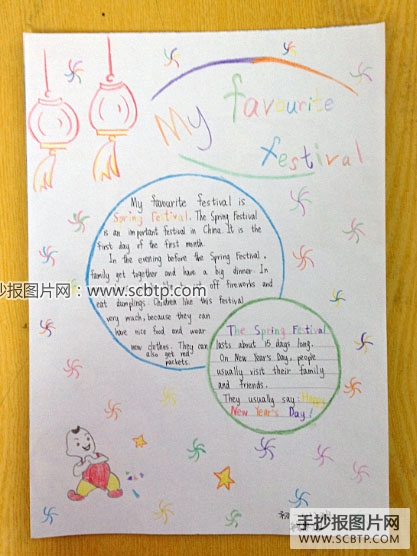 My favourite
festival
My favourite festival is
Spring Festival. The Spring Festival
is an important festival in China. It is the
first day of the first month.
In the evening before the Spring Festival,
family get together and have a big dinner. In
off fireworks and
eat dumplings. Children like this festival
very much, because they can
have nice food and wear
new clothes. They can
also get red
packets.
The Spring Festival
lasts about 15 days long.
On New Year's Day, people
usually visit their family
and friends.
They usually say: Happy
New Year's Day!
手抄报图片网:www.scbtp.com
手抄报图片网
WWW.SCBTP.COM